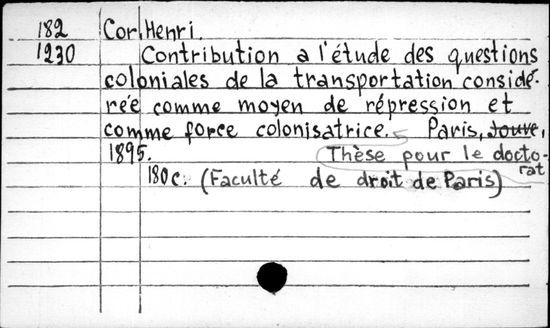 182 Cor, Henri.
1230 Contribution a l'étude des questions
coloniales de la transportation considé-
rée comme moyen de répression et
comme force colonisatrice. Paris, Jouve,
1895. Thèse pour le docto-
rat
180 c. (Faculté de droit de Paris)